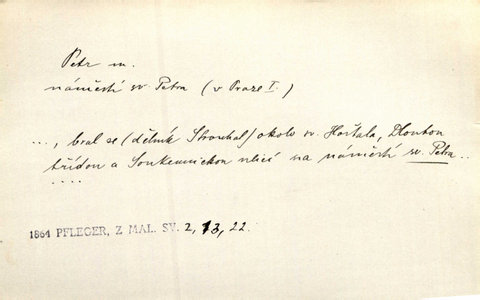 Petr m.
náměstí sv. Petra (v Praze I.)
..., bral se (dělník Strouhal) okolo sv. Haštala, Dlouhou
třídou a Soukenickou ulicí na náměstí sv. Petra..
....
1864 PFLEGER, Z MAL. SV. 2, 13, 22.